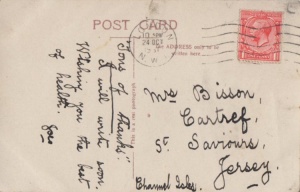 POST CARD
10.15 AM
24 OCT
N.W.
THE ADDRESS ONLY TO BE
WRITTEN HERE
Tons of thanks:
I will write soon
Wishing you the best
of health.
Mrs Bisson,
Cartref,
St. Saviours,
Jersey.
Channel Isles.